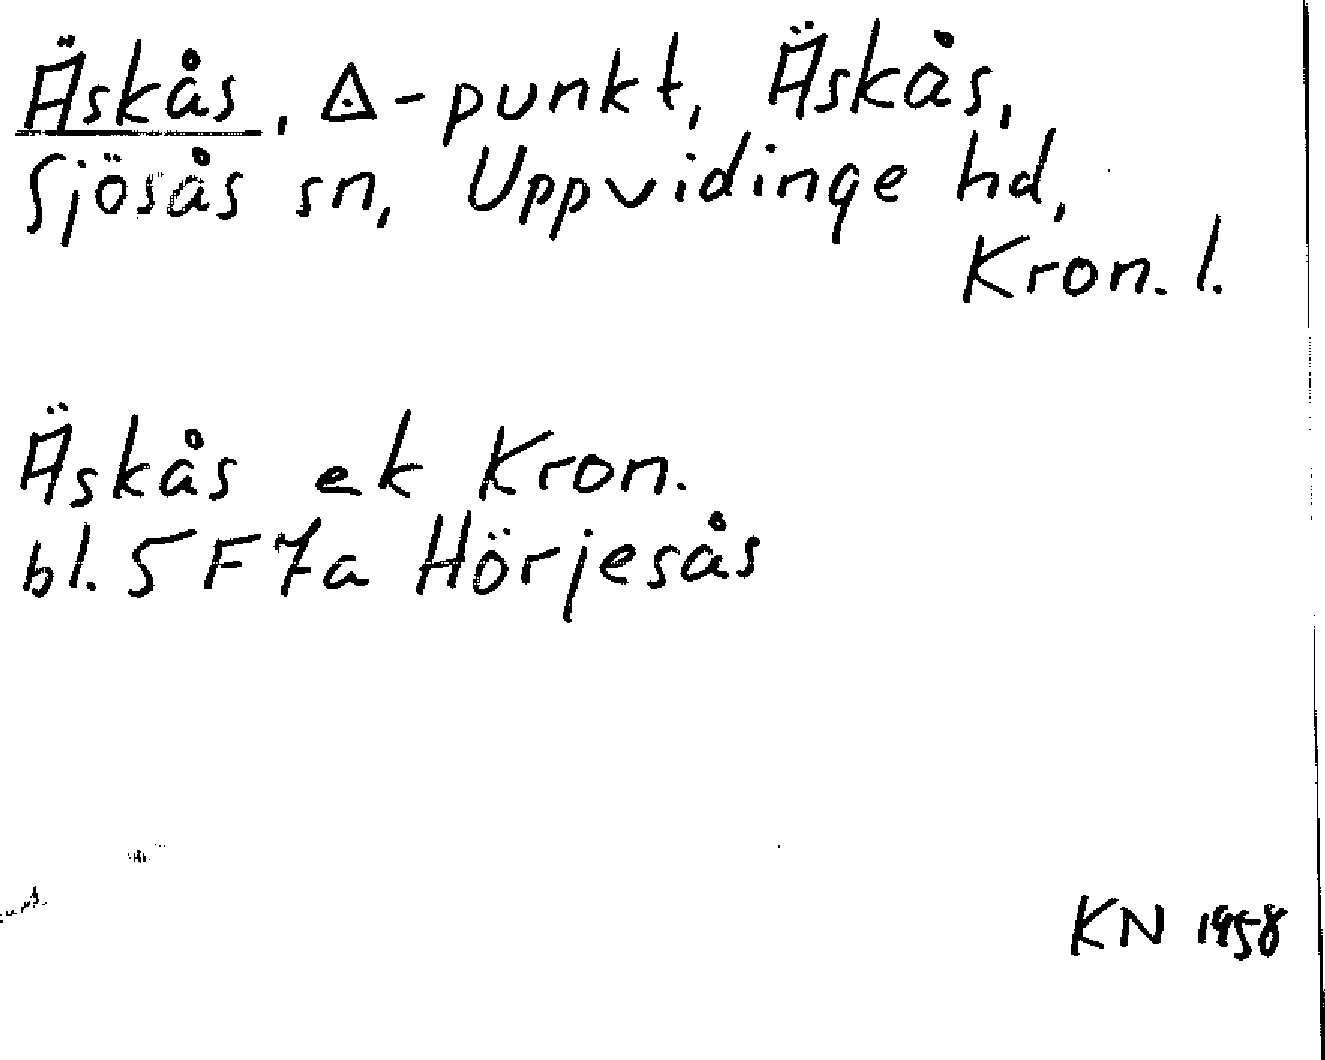 Äskås, △-punkt, Äskås,
Sjösås sn, Uppvidinge hd,
Kron. l.
Äskås ek Kron.
bl. 5 F 7a Hörjesås
KN 1958